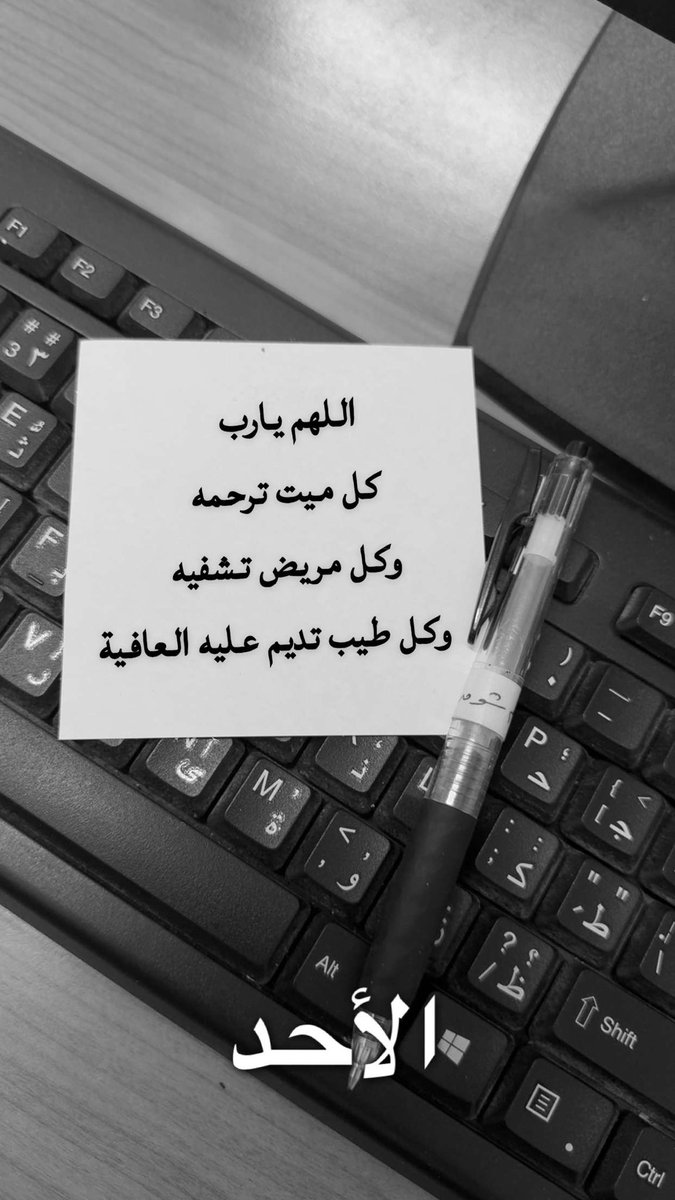 اللهم يارب
كل ميت ترحمه
وكل مريض تشفيه
وكل طيب تديم عليه العافية
الأحد
F1
F2
F3
# #
3 ٣
E
F
F9
V
P
M
Alt
Shift
Ctrl